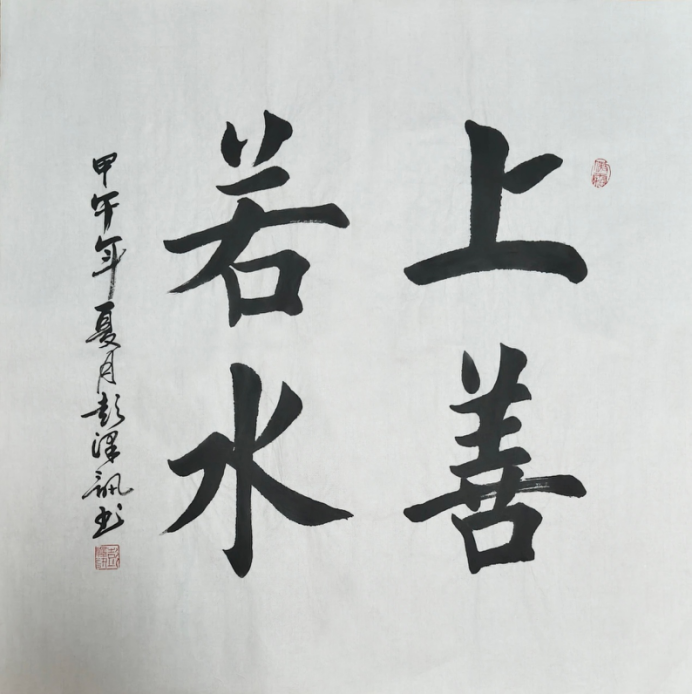 上善
若水
甲午年夏月彭泽訊书